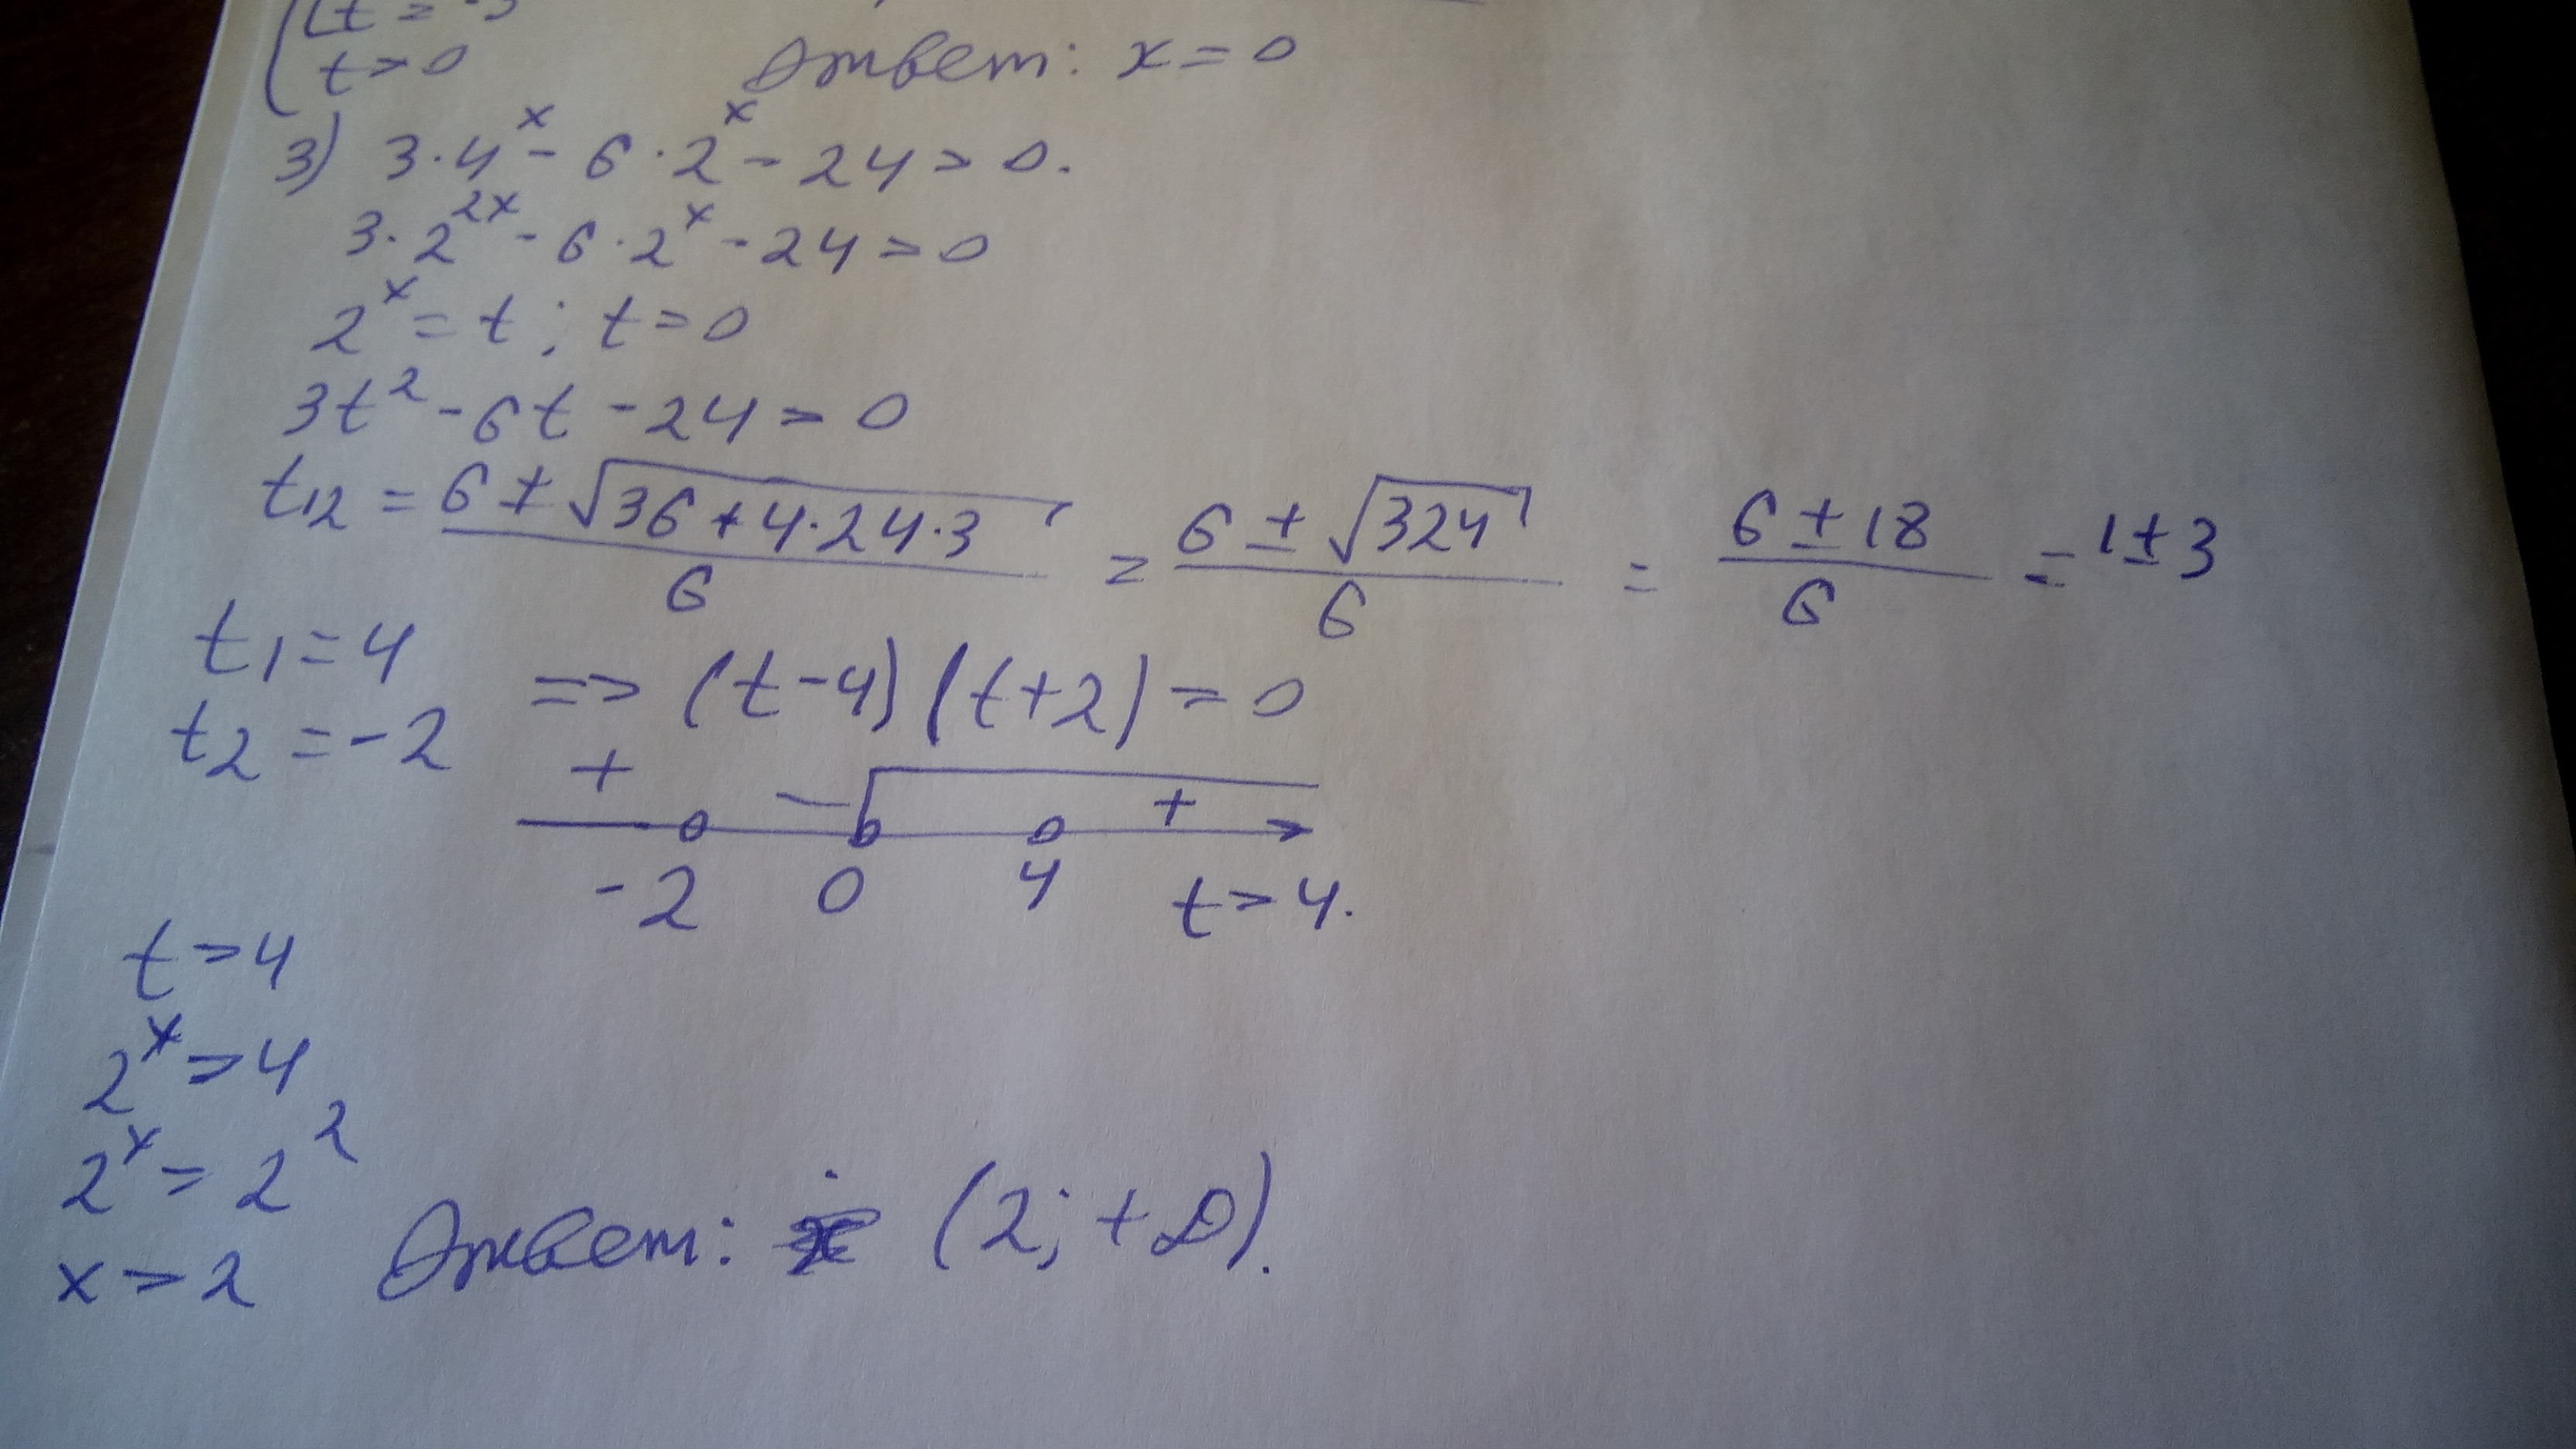 t = -3
t > 0
Ответ: x = 0
3) 3·4^x - 6·2^x - 24 > 0.
3·2^2x - 6·2^x - 24 > 0
2^x = t; t > 0
3t² - 6t - 24 > 0
t12 = (6 ± √(36 + 4·24·3))/6 = (6 ± √324)/6 = (6 ± 18)/6 = 1 ± 3
t1 = 4
t2 = -2
=> (t-4)(t+2) > 0
+ − +
-2 0 4 t > 4.
t > 4
2^x > 4
2^x > 2²
x > 2
Ответ: (2; +∞).